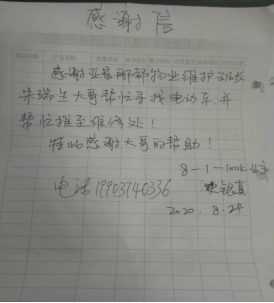 感谢信
感谢亚星丽都物业维护班长
朱瑞生大哥帮忙寻找电动车并
帮忙推至维修处！
特此感谢大哥的帮助！
8-1-1002业主
电话19903740336
2020.8.24